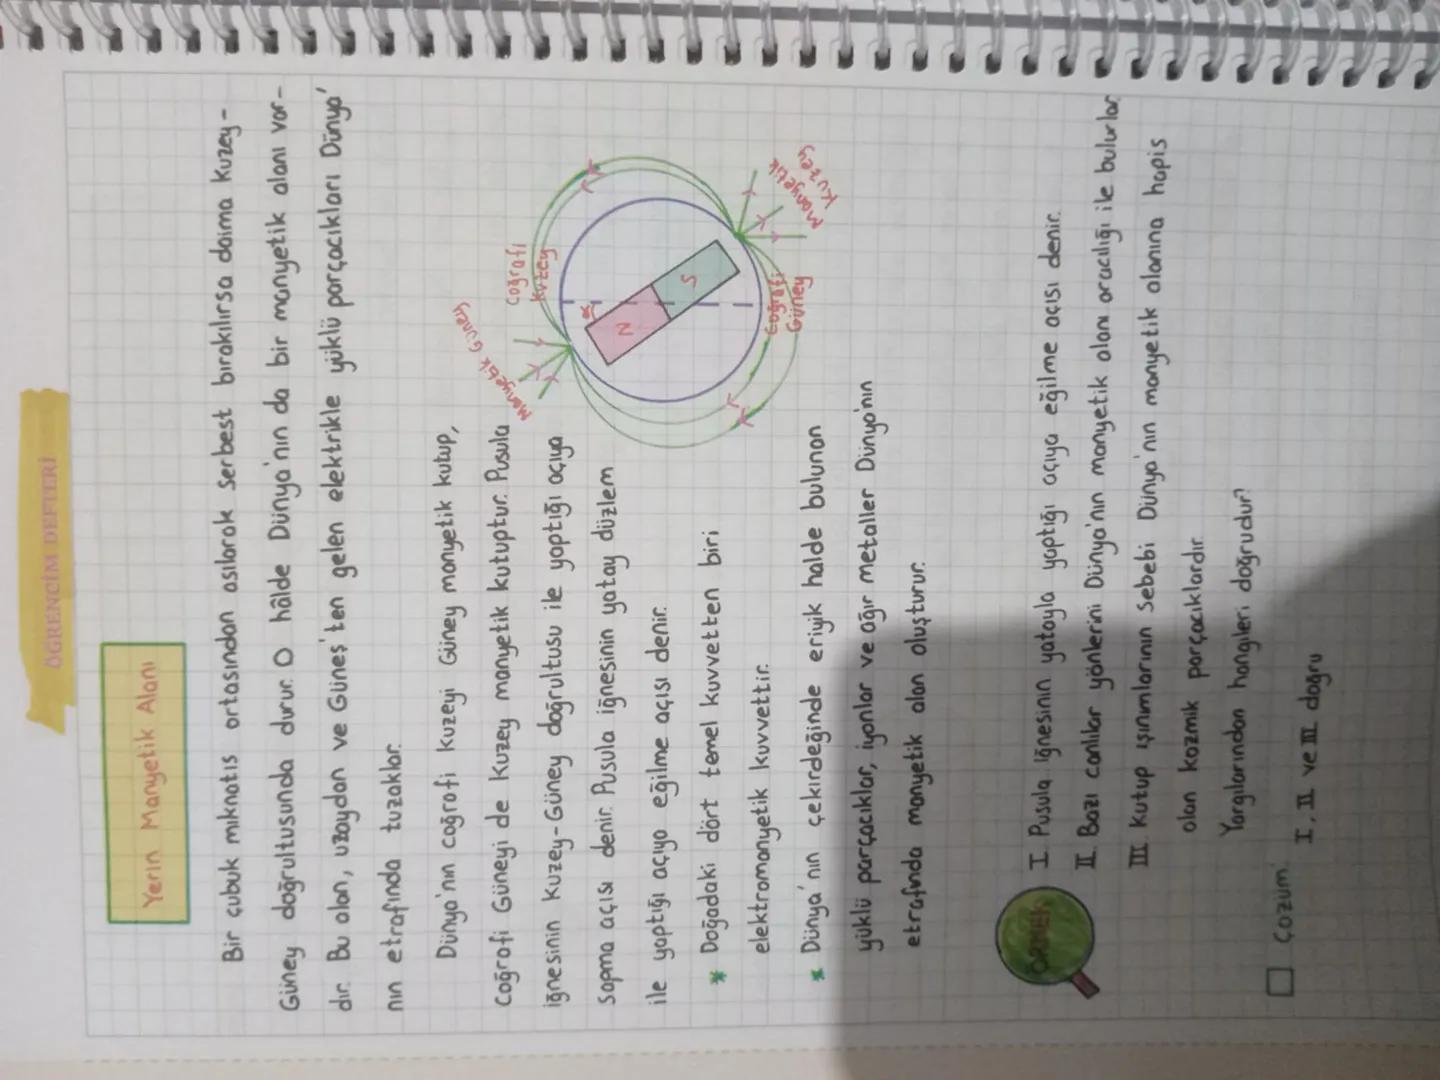 ÖĞRENCİM DEFTERİ
Yerin Manyetik Alanı
Bir çubuk mıknatıs ortasından asılarak serbest bırakılırsa daima Kuzey-
Güney doğrultusunda durur. O hâlde Dünya'nın da bir manyetik alanı var-
dır. Bu alan, uzaydan ve Güneş'ten gelen elektrikle yüklü parçacıkları Dünya'
nın etrafında tuzaklar.
Dünya'nın coğrafi Kuzeyi Güney manyetik kutup,
Coğrafi Güneyi de Kuzey manyetik kutuptur. Pusula
iğnesinin Kuzey-Güney doğrultusu ile yaptığı açıya
sapma açısı denir. Pusula iğnesinin yatay düzlem
ile yaptığı açıya eğilme açısı denir.
* Doğadaki dört temel kuvvetten biri
elektromanyetik kuvvettir.
* Dünya'nın çekirdeğinde eriyik halde bulunan
yüklü parçacıklar, iyonlar ve ağır metaller Dünya'nın
etrafında manyetik alan oluşturur.
Manyetik Güney
Coğrafi
Kuzey
α
N
S
Coğrafi
Güney
Manyetik
Kuzey
ÖRNEK
I. Pusula iğnesinin yatayla yaptığı açıya eğilme açısı denir.
II. Bazı canlılar yönlerini Dünya'nın manyetik alanı aracılığı ile bulurlar
III. Kutup ışınımlarının sebebi Dünya'nın manyetik alanına hapis
olan kozmik parçacıklardır.
Yargılarından hangileri doğrudur?
Çözüm:
I, II ve III doğru